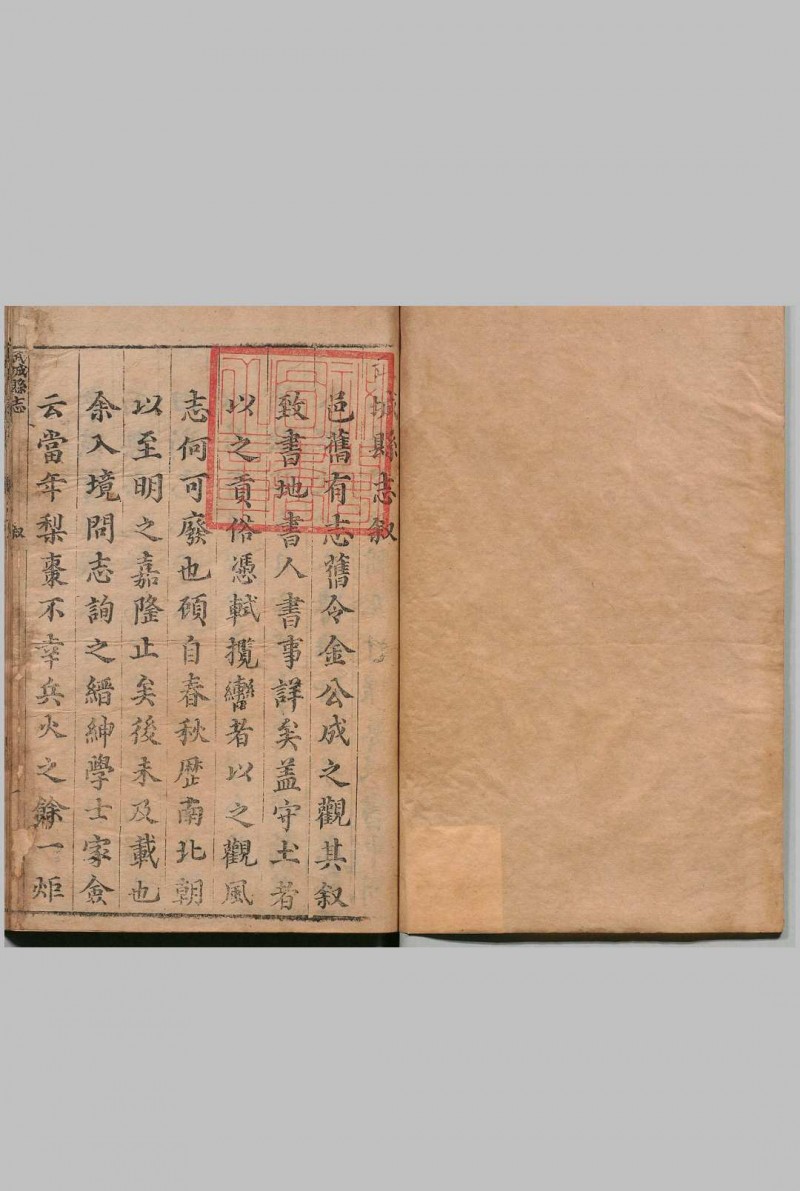 城縣志叙
邑舊有志舊令金公成之觀其叙
致書地書人書事詳矣盖守土者
以之貢俗憑軾攬轡者以之觀風
志何可廢也顧自春秋歴南北朝
以至明之嘉隆止矣後未及載也
余入境問志詢之縉紳學士家僉
云當年梨棗不幸兵火之餘一炬
城縣志
叙